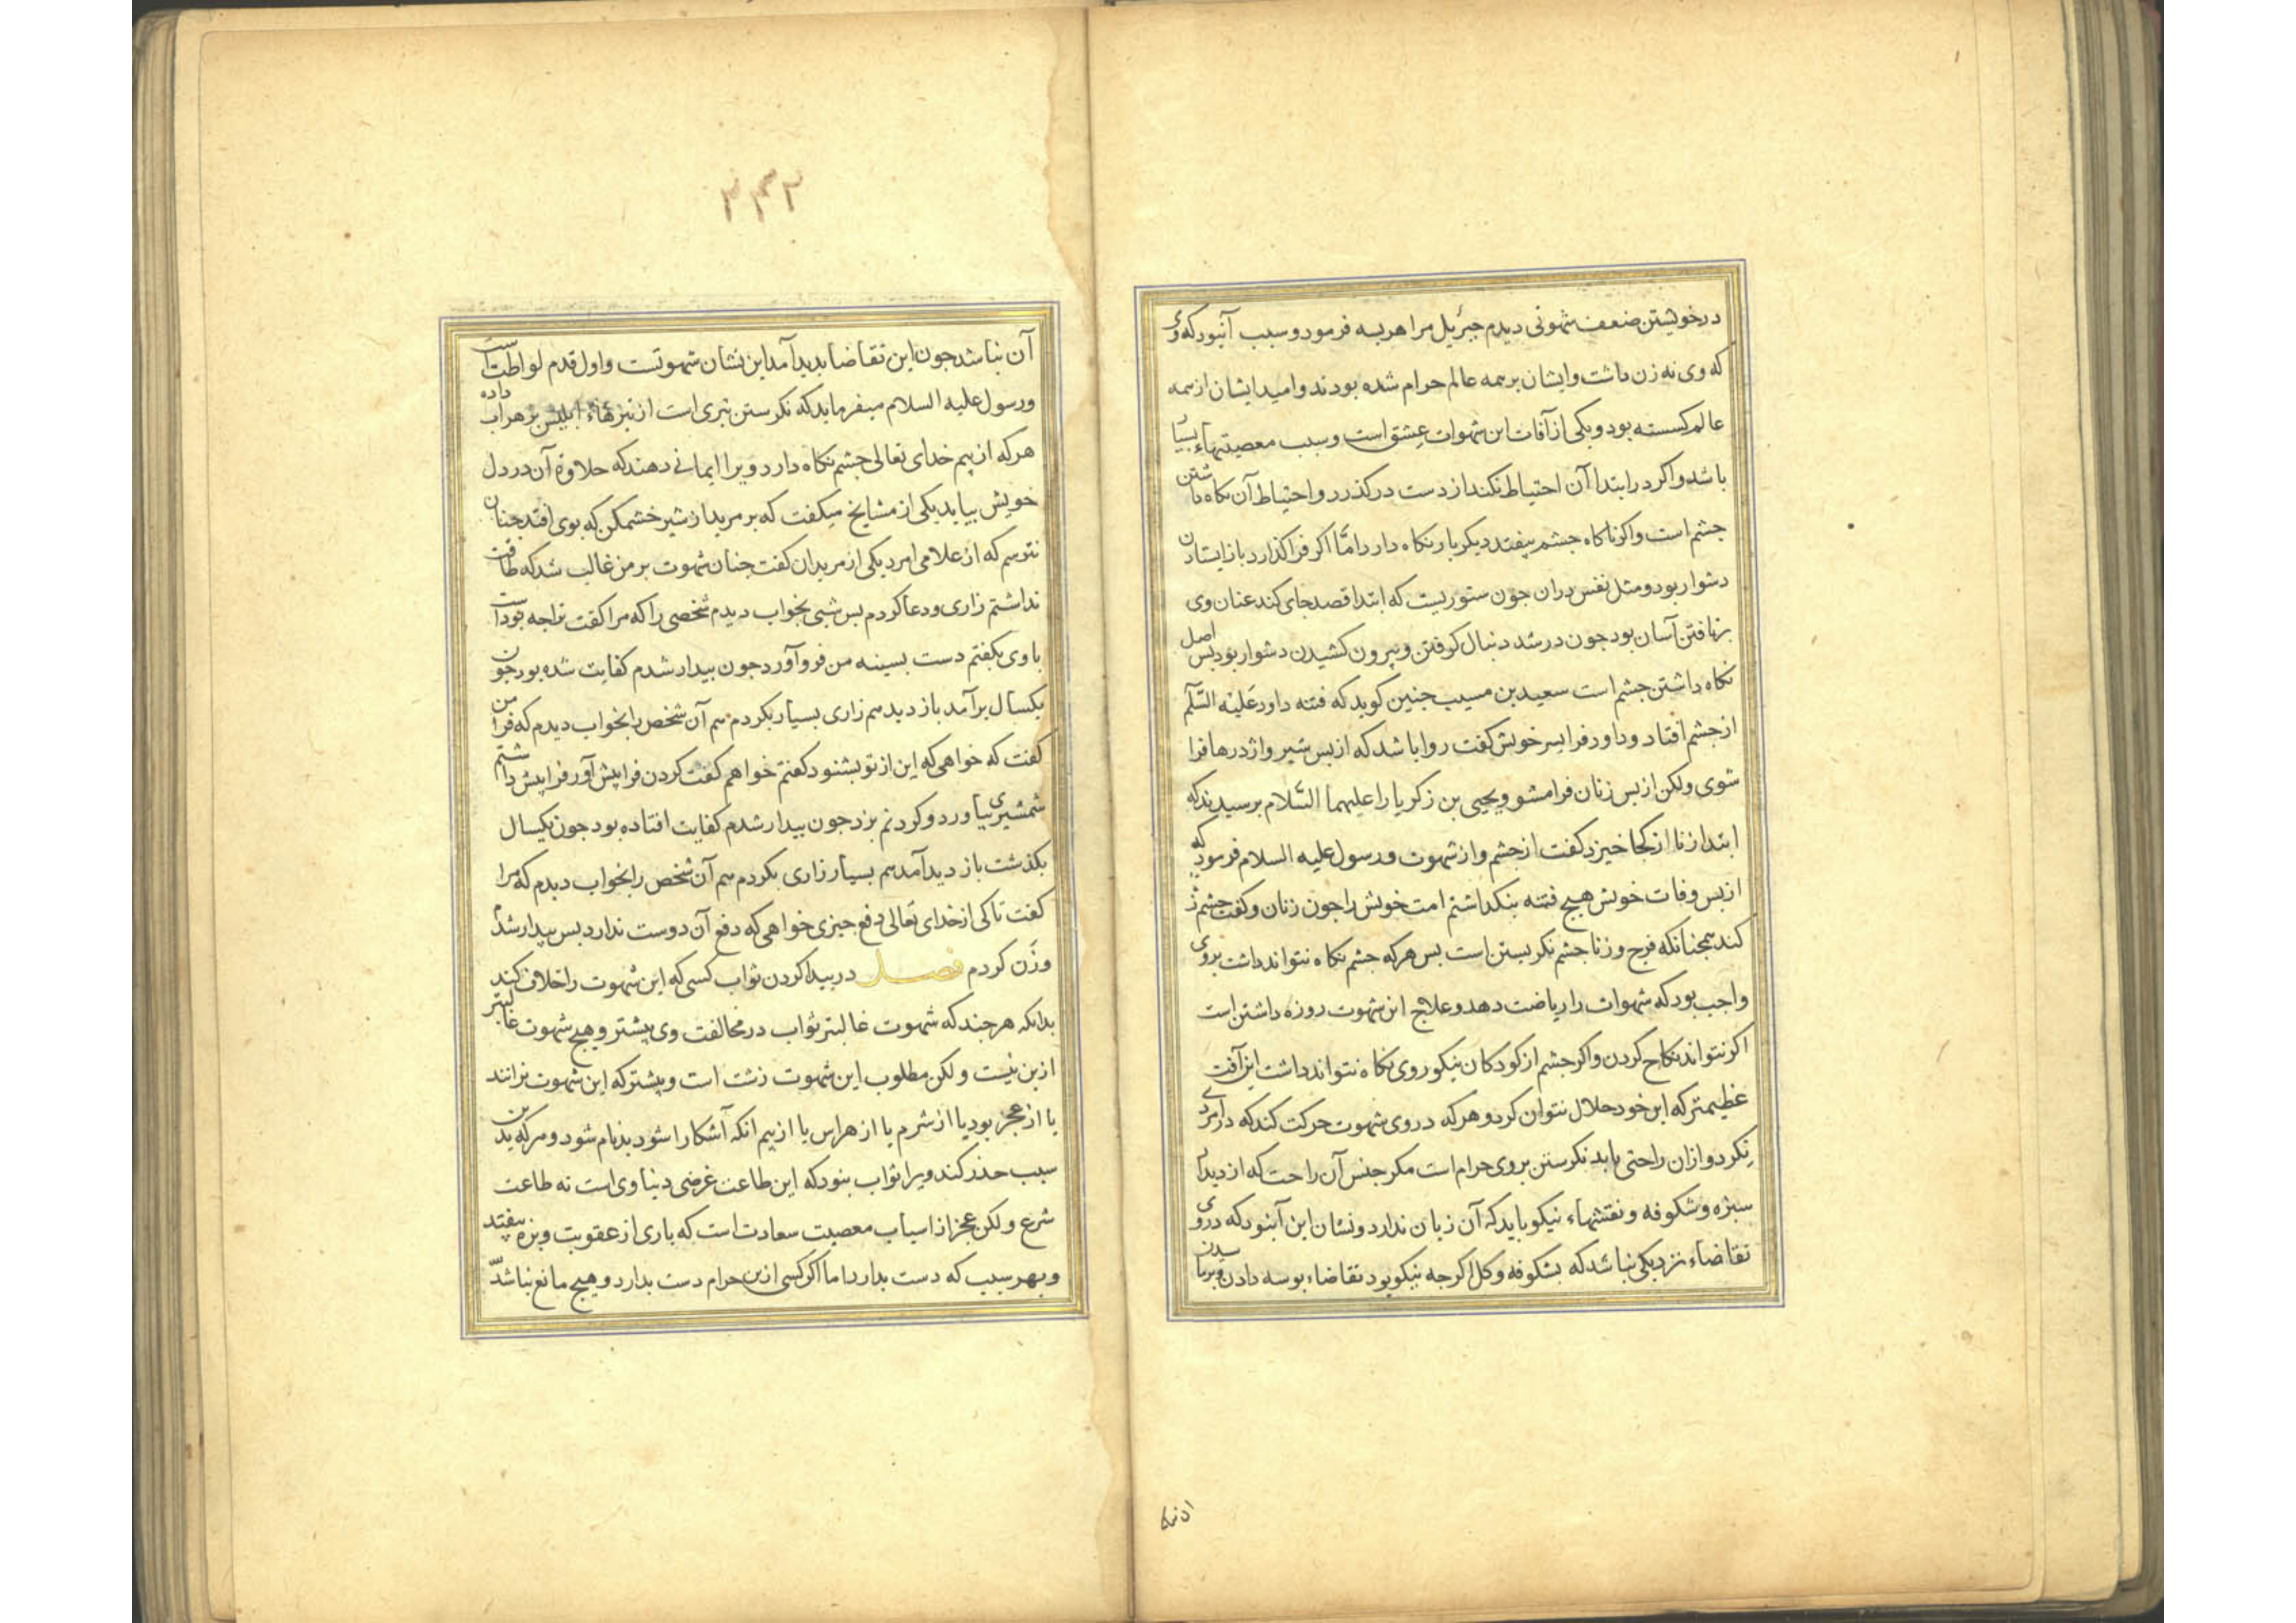 در خویشتن ضعف شهوتی دیدم جبرئیل مرا هریسه فرمود و سبب آنبود که وی
که وی نه زن داشت و ایشان بر همه عالم حرام شده بودند و امید ایشان از همه
عالم کسسته بود و یکی از آفات این شهوات عشق است و سبب معصیتهاء بسیار
باشد و اکر در ابتدا آن احتیاط نکند از دست در کذرد و احتیاط آن نکاه داشتن
جشم است و اکر ناکاه جشم بیفتد دیکر بار نکاه دارد امّا اکر فرا کذارد باز ایستادن
دشوار بود و مثل نفس دران جون ستوریست که ابتدا قصد جای کند عنان وی
برتافتن آسان بود جون در شد دنبال کرفتن و بیرون کشیدن دشوار بود بس اصل
نکاه داشتن جشم است سعید بن مسیب جنین کوید که فتنه داود عَلَیْه السَّلَم
از جشم افتاد و داود فرا بسر خویش کفت روا باشد که از بس شیر و اژدرها فرا
شوی ولکن از بس زنان فرا مشو و یحیی بن زکریا را علیهما السَّلام برسیدند که
ابتدا زنا از کجا خیزد کفت از جشم و از شهوت و رسول علیه السلام فرمود که
از بس وفات خویش هیچ فتنه بنکداشتم امت خویش را جون زنان و کفت جشم زنا
کند همجنانکه فرج و زنا جشم نکریستن است بس هر که جشم نکاه نتواند داشت بر وی
واجب بود که شهوات را ریاضت دهد و علاج این شهوت روزه داشتن است
اکر نتواند نکاح کردن و اکر جشم از کودکان نیکو روی نکاه نتواند داشت این آفت
عظیمتر که این خود حلال نتوان کرد و هر که در وی شهوت حرکت کند که در امردی
نکرد و ازان راحتی یابد نکرستن بر وی حرام است مکر جنس آن راحت که از دیدار
سبزه و شکوفه و نقشهاء نیکو یابد که آن زیان ندارد و نشان این آنبود که در وی
تقاضاء نزدیکی نباشد که بشکوفه و کل اکرجه نیکو بود تقاضاء بوسه دادن و برسیدن
۲۴۲
آن نباشد جون این تقاضا بدید آمد این نشان شهوتست و اول قدم لواطت است
و رسول علیه السلام میفرماید که نکرستن تیری است از تیرهاء ابلیس بزهر اب داده
هر که از بیم خدای تعالی جشم نکاه دارد ویرا ایمانی دهند که حلاوة آن در دل
خویش بیابد یکی از مشایخ میکفت که بر مرید از شیر خشمکن که بوی افتد جنان
نترسم که از غلامی امرد یکی از مریدان کفت جنان شهوت بر من غالب شد که طاقت
نداشتم زاری و دعا کردم بس شبی بخواب دیدم شخصی را که مرا کفت ترا جه بوداست
با وی بکفتم دست بسینه من فرو آورد جون بیدار شدم کفایت شده بود جون
یکسال بر آمد باز دید هم زاری بسیار بکردم هم آن شخص را بخواب دیدم که فرا من
کفت که خواهی که این از تو بشنود کفتم خواهم کفت کردن فرا پیش آور فرا پیش داشتم
شمشیری بیاورد و کردنم بزد جون بیدار شدم کفایت افتاده بود جون یکسال
بکذشت باز دید آمد هم بسیار زاری بکردم هم آن شخص را بخواب دیدم که مرا
کفت تا کی از خدای تعالی دفع جیزی خواهی که دفع آن دوست ندارد بس بیدار شدم
و زن کردم فصل در بیدا کردن ثواب کسی که این شهوت را خلاف کند
بدانکه هر جند که شهوت غالبتر ثواب در مخالفت وی بیشتر و هیچ شهوت غالبتر
ازین نیست ولکن مطلوب این شهوت زشت است و بیشتر که این شهوت نرانند
یا از عجز بود یا از شرم یا از هراس یا از بیم انکه آشکارا شود بدنام شود و هر که بدین
سبب حذر کند ویرا ثواب نبود که این طاعت غرضی دنیاوی است نه طاعت
شرع ولکن عجز از اسباب معصیت سعادت است که باری از عقوبت و بزه بیفتد
و بهر سبب که دست بدارد اما اکر کسی ازین حرام دست بدارد و هیچ مانع نباشد